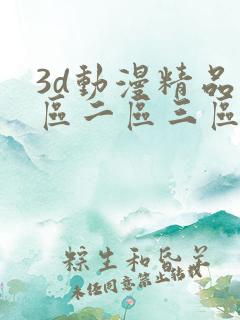 3d動漫精品
區二區三區
粽生和昏羊
未经同意禁止转载